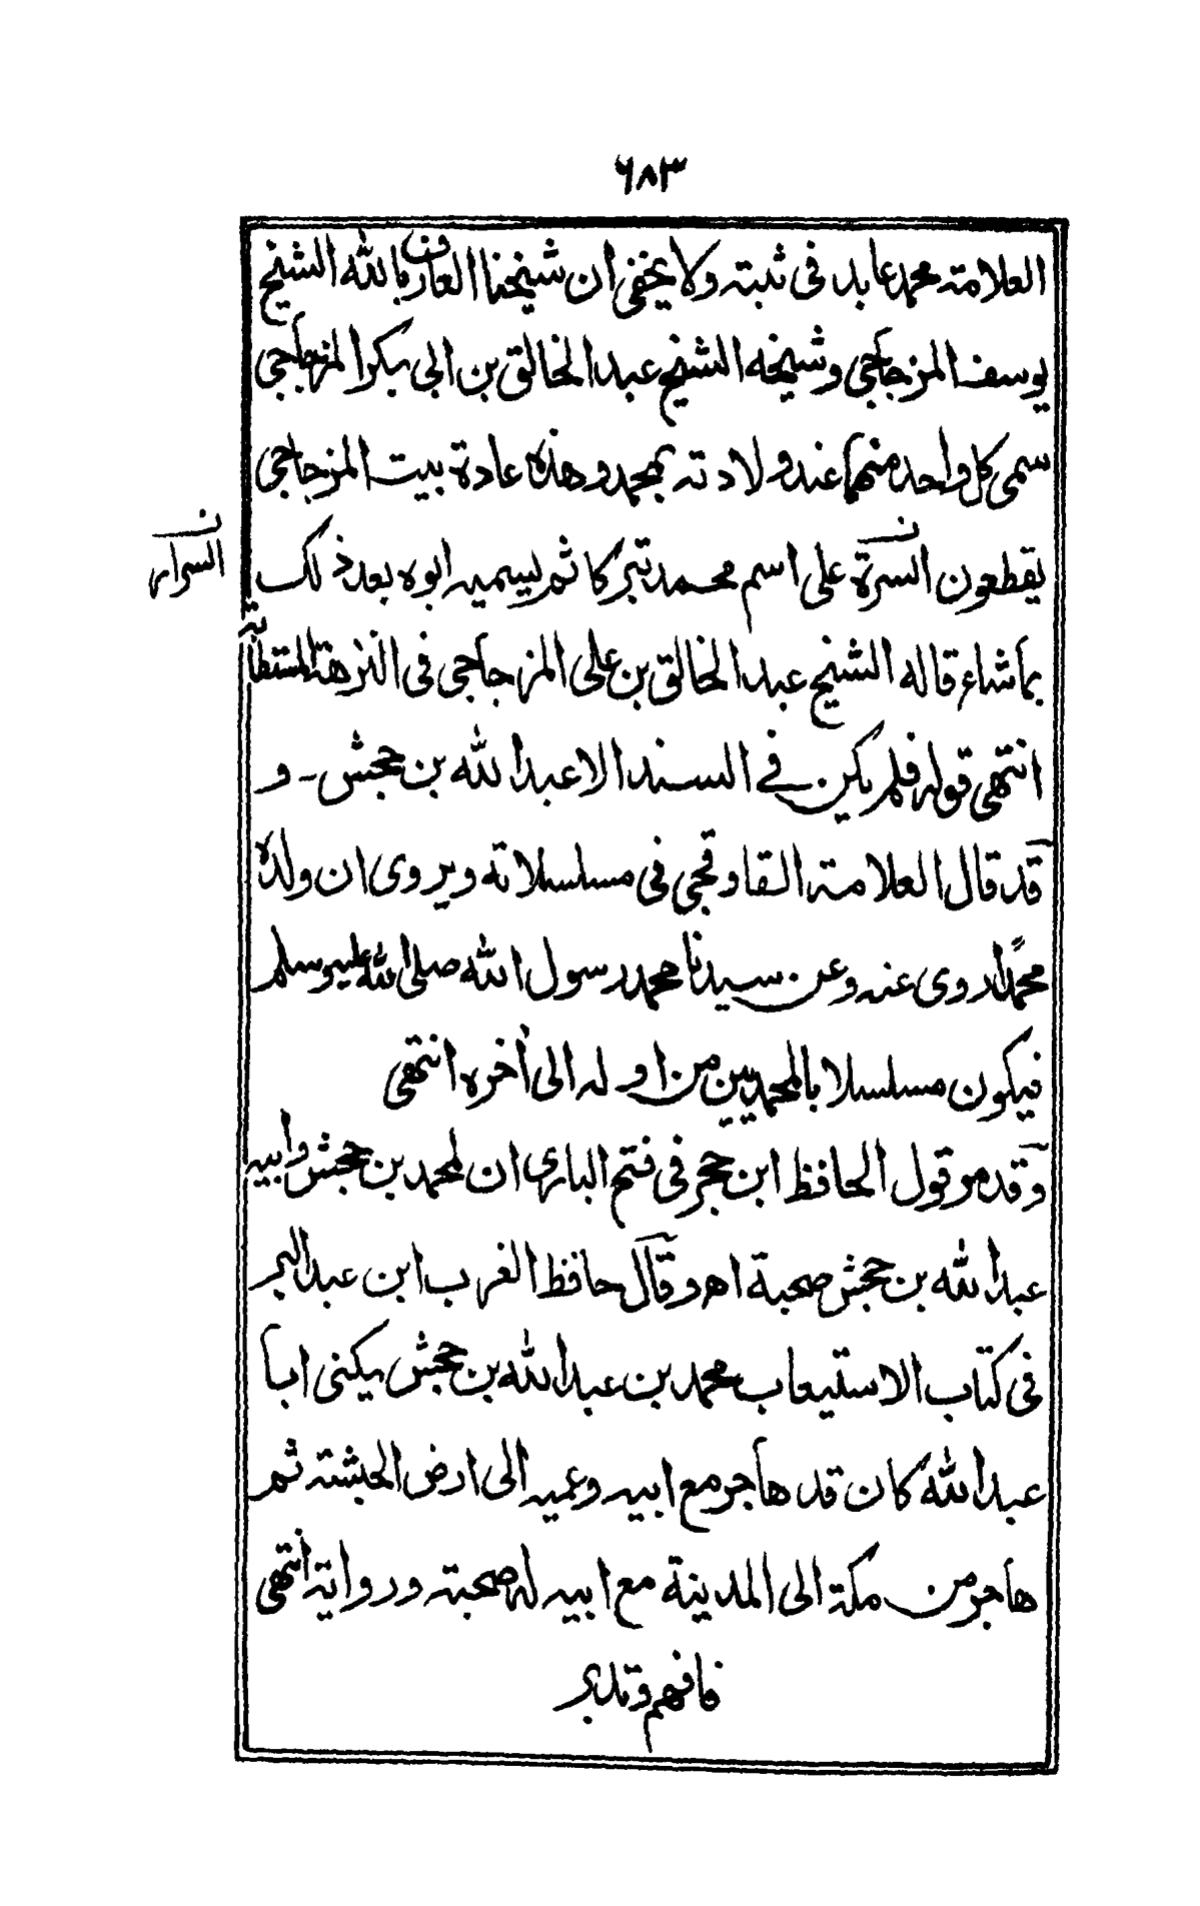 ٦٨٣
العلامة محمد عابد فى ثبته ولا يخفى ان شيخنا العارف بالله الشيخ
يوسف المزجاجى وشيخه الشيخ عبد الخالق بن ابى بكر المزجاجى
سمى كل واحد منهما عند ولادته بمحمد وهذه عادة بيت المزجاجى
يقطعون السرة على اسم محمد تبركا ثم يسميه ابوه بعد ذلك
السرار
بما شاء قاله الشيخ عبد الخالق بن على المزجاجى فى النزهة المستطابة
انتهى قوله فلم يكن فے السند الا عبد الله بن جحش - و
قد قال العلامة القاوقجى فى مسلسلاته ويروى ان ولده
محمدًا روى عنه وعن سيدنا محمد رسول الله صلى الله عليه وسلم
فيكون مسلسلا بالمحمديين من اوله الى أخره انتهى
وقد مر قول الحافظ ابن حجر فى فتح البارى ان لمحمد بن جحش وابيه
عبد الله بن جحش صحبة اھ وقال حافظ الغرب ابن عبد البر
فى كتاب الاستيعاب محمد بن عبد الله بن جحش يكنى ابا
عبد الله كان قد هاجر مع ابيه وعميه الى ارض الحبشة ثم
هاجر من مكة الى المدينة مع ابيه له صحبة ورواية انتهى
فافهم وتدبر